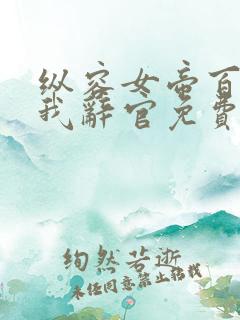 纵容女帝百
我辭官免費
绚然若逝
未经同意禁止转载